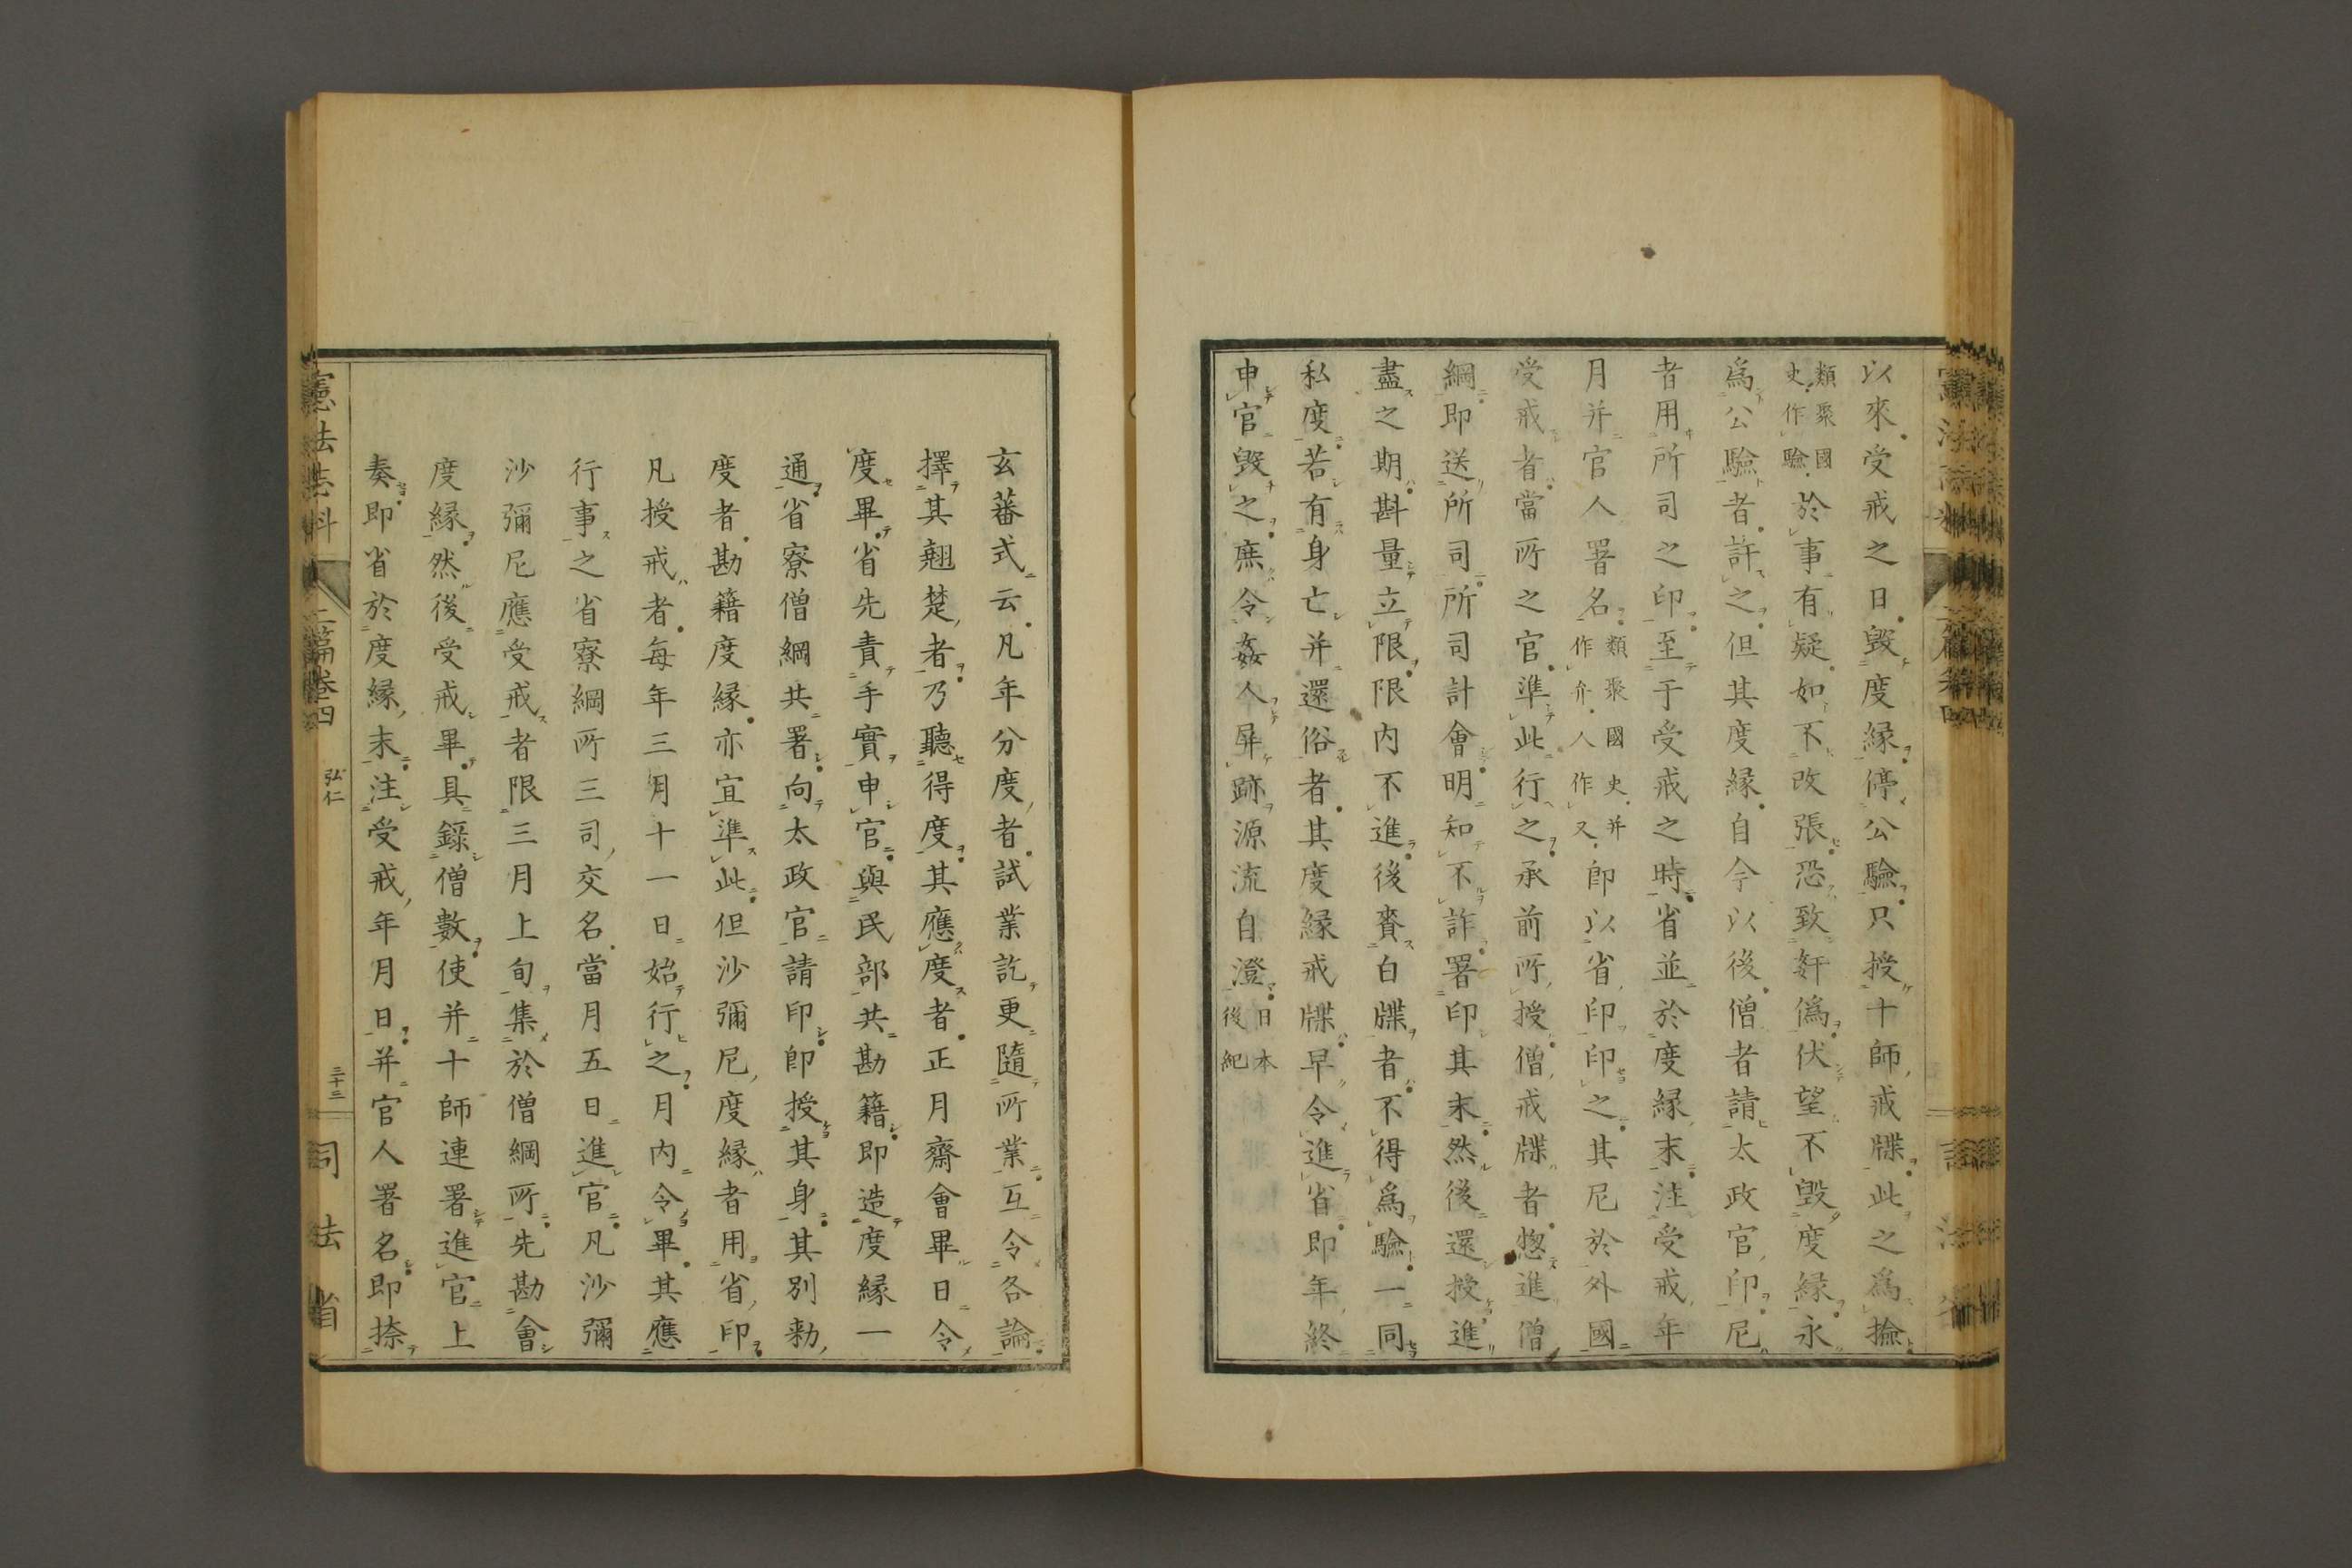 以來受戒之日毀度縁停公驗只授十師戒牒此之爲撿
類聚國史作驗於事有疑如不改張恐致姧僞伏望不毀度縁永
爲公驗者許之但其度縁自今以後僧者請太政官印尼
者用所司之印至于受戒之時省並於度縁末注受戒年
月并官人署名類聚國史并作介人作又即以省印印之其尼於外國
受戒者當所之官準此行之承前所授僧戒牒者惣進僧
綱即送所司所司計會明知不詐署印其末然後還授進
盡之期斟量立限限内不進後賚白牒者不得爲驗一同
私度若有身亡并還俗者其度縁戒牒早令進省即年終
申官毀之庶令姦人屏跡源流自澄日本後紀
玄蕃式云凡年分度者試業訖更隨所業互令各論
擇其翹楚者乃聽得度其應度者正月齋會畢日令
度畢省先責手實申官與民部共勘籍即造度縁一
通省寮僧綱共署向太政官請印即授其身其別勅
度者勘籍度縁亦宜準此但沙彌尼度縁者用省印
凡授戒者每年三月十一日始行之月内令畢其應
行事之省寮綱所三司交名當月五日進官凡沙彌
沙彌尼應受戒者限三月上旬集於僧綱所先勘會
度縁然後受戒畢具錄僧數使并十師連署進官上
奏即省於度縁末注受戒年月日并官人署名即捺
憲法志料 二篇卷四 弘仁 二十三 司法省